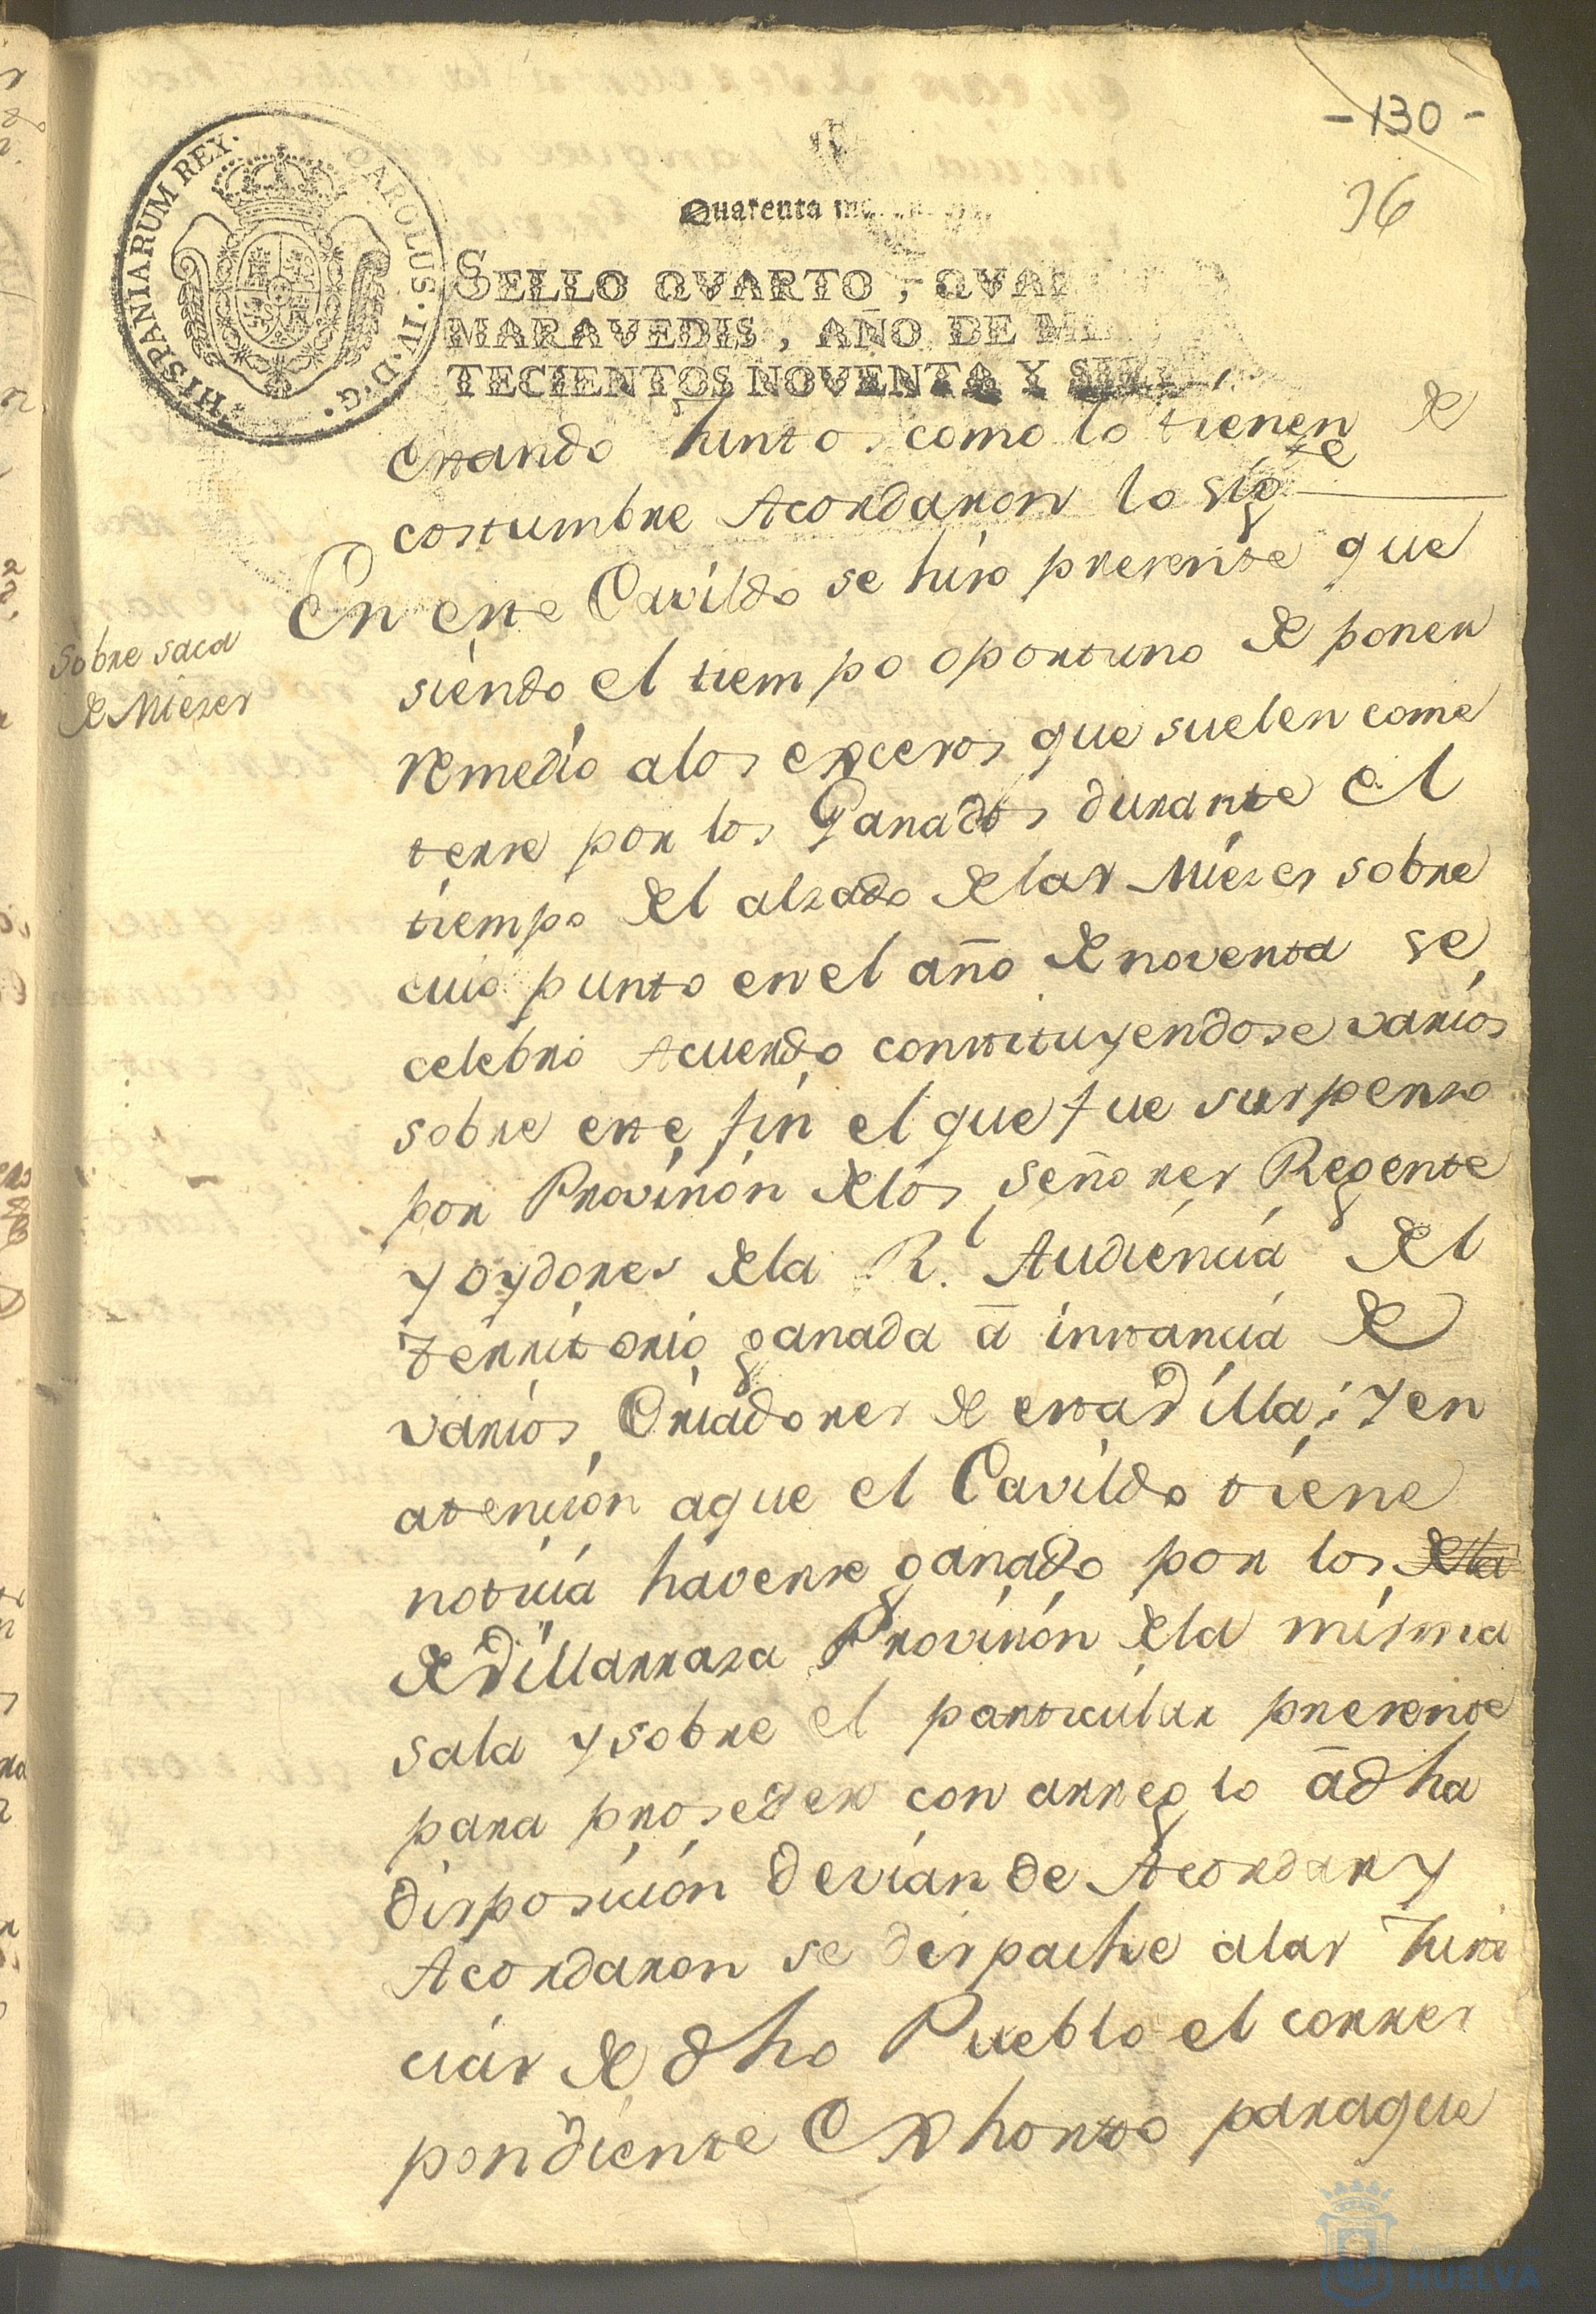 - 130 -
36
HISPANIARUM REX.
CAROLUS · IV · D · G ·
Quarenta
SELLO QVARTO, QVAR
MARAVEDIS, AÑO DE MI
TECIENTOS NOVENTA Y SIETE,
estando Juntos como lo tienen de
costumbre Acordaron lo sigte
Sobre saca
de Miezes
En este Cavildo se hiso presente que
siendo el tiempo oportuno de poner
remedio a los excesos que suelen come
terse por los Ganados durante el
tiempo del alzado de las Miezes sobre
cuio punto en el año de noventa se
celebró Acuerdo constituyendose varios
sobre este fin el que fue suspenso
por Provision de los señores Regente
y oydores de la Rl. Audiencia del
territorio ganada à instancia de
varios Criadores de esta Villa; y en
atencion aque el Cavildo tiene
noticia haverse ganado por los dela
de Villarrasa Provision de la misma
sala y sobre el particular presente
para proseder con arreglo à dha
disposicion devian de Acordar y
Acordaron se despache alas Justi
cias de dho Pueblo el corres
pondiente Exhorto paraque
HUELVA